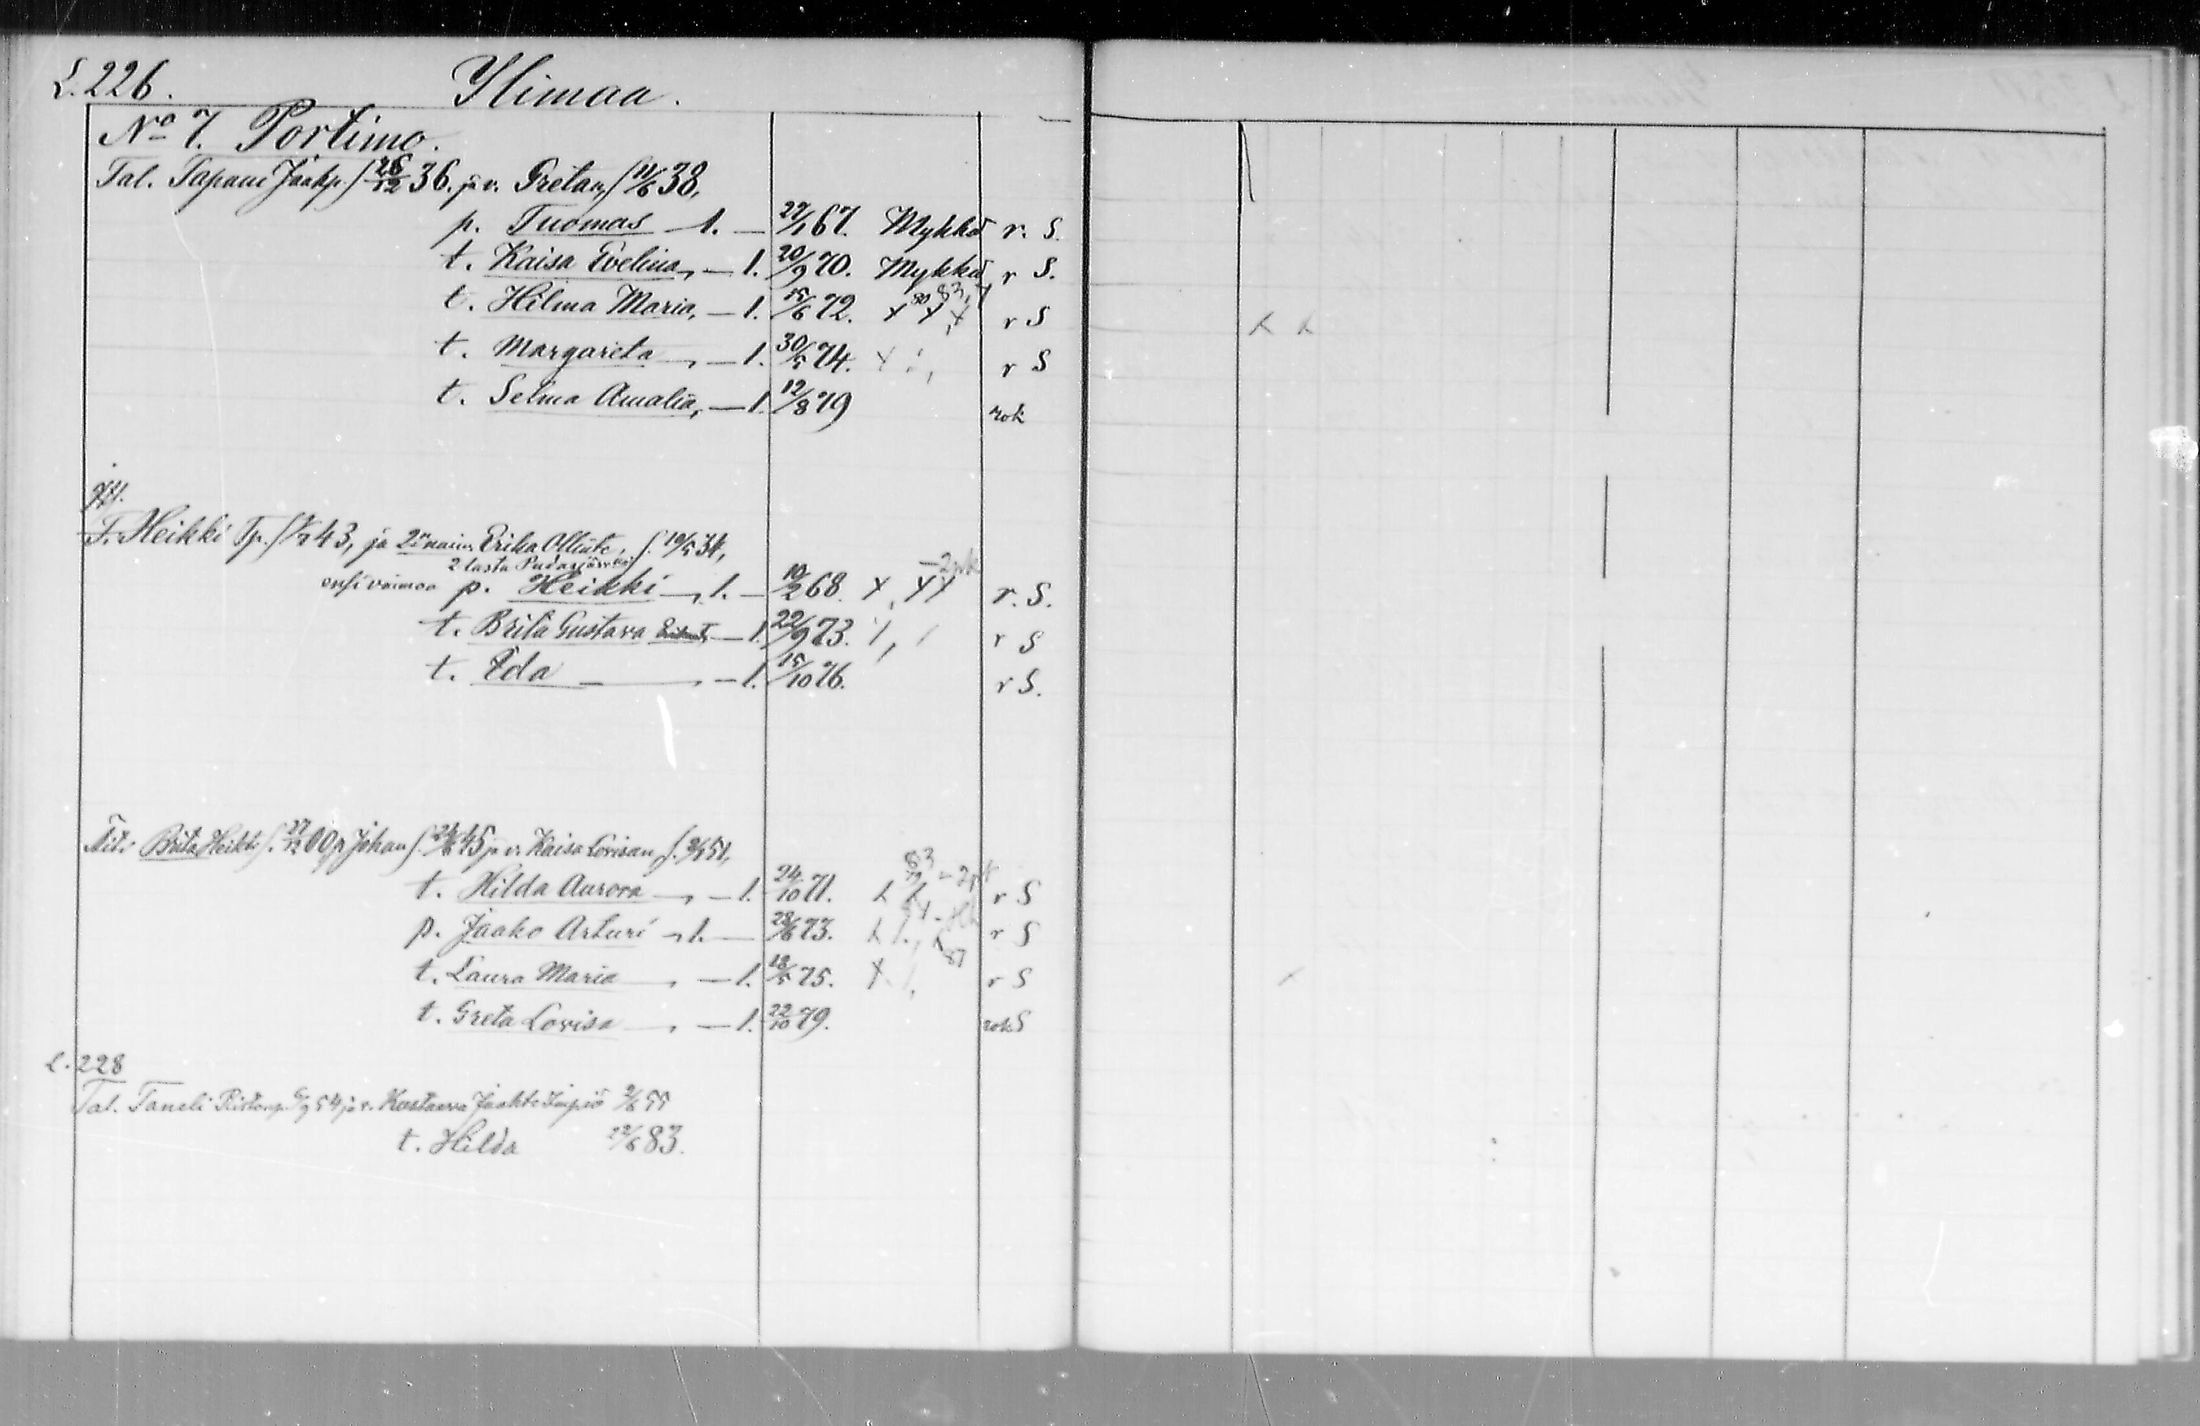 L. 226. Ylimaa.
No 7. Portimo.
Tal. Tapani Jaakp. S 26/12 36. ja v. Gretan, S 11/6 38,
p. Tuomas 1. — 27/1 67. Mykkä r. S.
t. Kaisa Evelina, — 1. 20/9 70. Mykkä r S.
t. Hilma Maria, — 1. 15/6 72. x x x 80 83 r S
t. Margareta — 1. 30/5 74. x r S
t. Selma Amalia, — 1. 12/8 79 rok
T. Heikki Tp. 43, ja 2n naim. Erika Ollint. S. 19/5 34,
2 lasta Pudasjärvellä
ensi vaimoa p. Heikki 1. — 10/2 68. x, xx —2pk r. S.
t. Brita Gustava — 1. 22/9 73. r S
t. Eda — — 1. 15/10 76. r S.
Äiti Brita Heikt. S. 27/12 00, p. Johan S. 24/6 45 ja v. Kaisa Lovisan, S. 51,
t. Hilda Aurora — 1. 24/10 71. 83 r S
p. Jaako Arturi 1. — 28/6 73. r S
t. Laura Maria — 1. 18/5 75. x 87 r S
t. Greta Lovisa — 1. 22/10 79. rok S
L. 228
Tal. Taneli 54 ja v. Kustaava Jaakt. Impiö 2/6 55
t. Hilda 22/6 83.